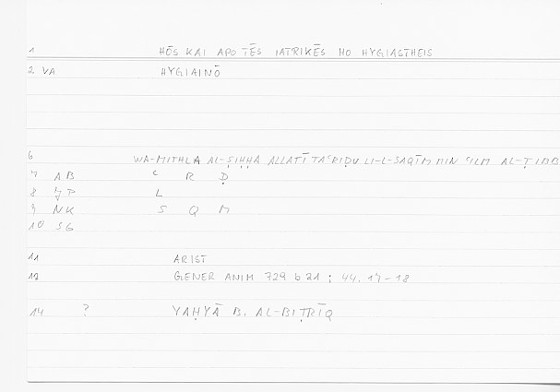 1 HŌS KAI APO TĒS IATRIKĒS HO HYGIASTHEIS
2 VA HYGIAINŌ
6 WA-MITHLA AL-ṢIḤḤA ALLATĪ TAʿRIḌU LI-L-SAQĪM MIN ʿILM AL-ṬIBB
7 AB ʿ R Ḍ
8 L
9 NK S Q M
10 SG
11 ARIST
12 GENER ANIM 729 b 21 ; 44.17-18
14 ? YAḤYĀ B. AL-BIṬRĪQ